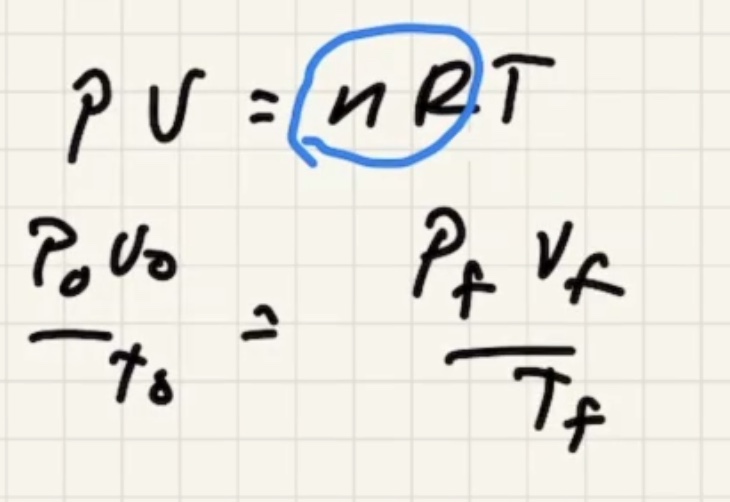 PV = nRT
P₀V₀ / T₀ = P_f V_f / T_f